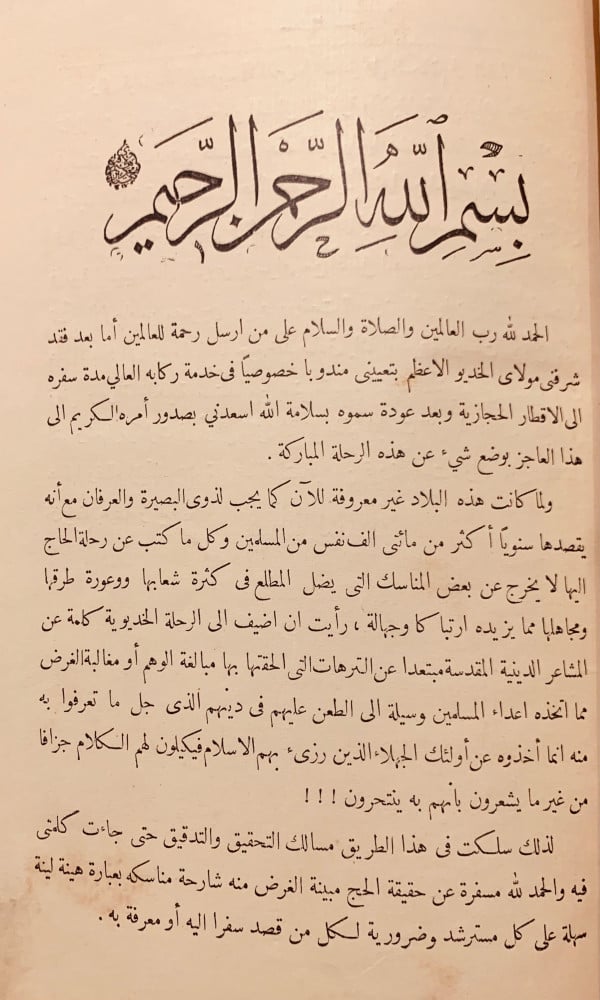 بِسْمِ اللَّهِ الرَّحْمٰنِ الرَّحِيمِ
الحمد لله رب العالمين والصلاة والسلام على من ارسل رحمة للعالمين أما بعد فقد
شرفنى مولاى الخديو الاعظم بتعيينى مندوبا خصوصيًا فى خدمة ركابه العالى مدة سفره
الى الاقطار الحجازية وبعد عودة سموه بسلامة الله اسعدني بصدور أمره الكريم الى
هذا العاجز بوضع شيء عن هذه الرحلة المباركة .
ولما كانت هذه البلاد غير معروفة للآن كما يجب لذوى البصيرة والعرفان مع أنه
يقصدها سنويًا أكثر من مائتى الف نفس من المسلمين وكل ما كتب عن رحلة الحاج
اليها لا يخرج عن بعض المناسك التى يضل المطلع فى كثرة شعابها ووعورة طرقها
ومجاهلها مما يزيده ارتباكا وجهالة ، رأيت ان اضيف الى الرحلة الخديوية كلمة عن
المشاعر الدينية المقدسة مبتعدا عن الترهات التى الحقتها بها مبالغة الوهم أو مغالبة الغرض
مما اتخذه اعداء المسلمين وسيلة الى الطعن عليهم فى دينهم الذى جل ما تعرفوا به
منه انما أخذوه عن أولئك الجهلاء الذين رزىء بهم الاسلام فيكيلون لهم الكلام جزافا
من غير ما يشعرون بانهم به ينتحرون ! ! !
لذلك سلكت فى هذا الطريق مسالك التحقيق والتدقيق حتى جاءت كلمتى
فيه والحمد لله مسفرة عن حقيقة الحج مبينة الغرض منه شارحة مناسكه بعبارة هينة لينة
سهلة على كل مسترشد وضرورية لكل من قصد سفرا اليه أو معرفة به .